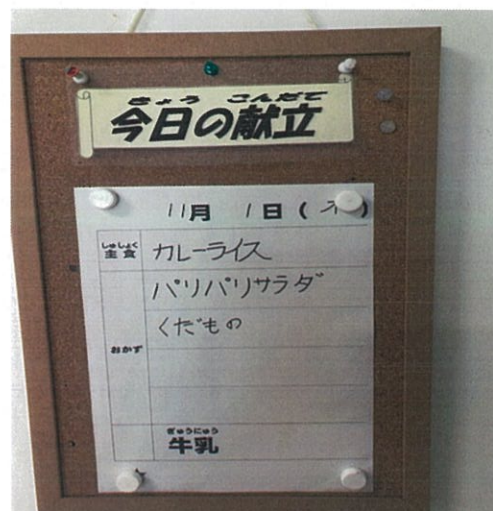 きょう こんだて
今日の献立
11月 1日( )
しゅしょく
主食 カレーライス
パリパリサラダ
くだもの
おかず
ぎゅうにゅう
牛乳